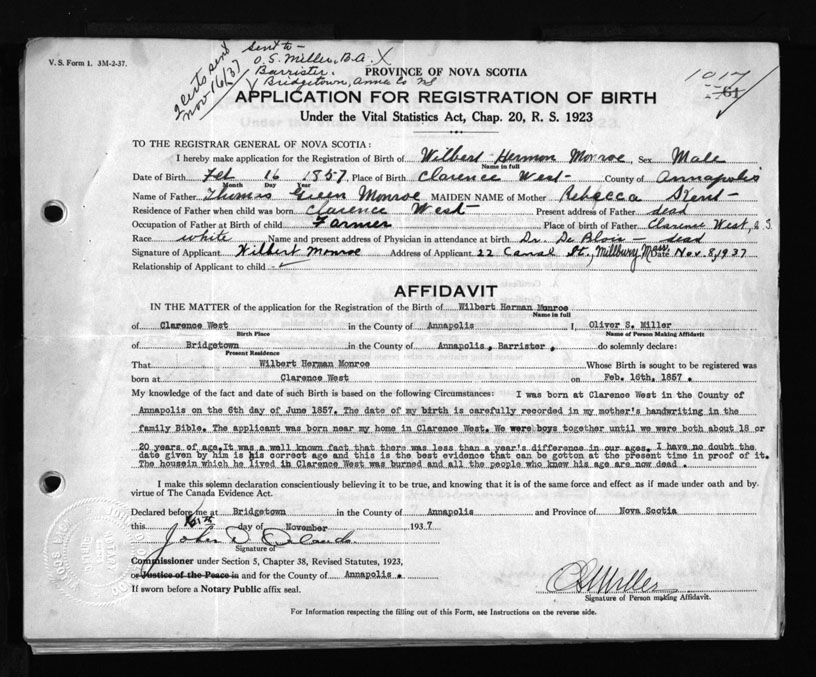 V. S. Form 1. 3M-2-37.
2 certs sent
Nov 16/37
sent to -
O. S. Miller, B.A. X
Barrister.
Bridgetown, Anna Co NS
1017
61
PROVINCE OF NOVA SCOTIA
APPLICATION FOR REGISTRATION OF BIRTH
Under the Vital Statistics Act, Chap. 20, R. S. 1923
TO THE REGISTRAR GENERAL OF NOVA SCOTIA:
I hereby make application for the Registration of Birth of Wilbert Hermon Monroe, Sex Male
Name in full
Date of Birth Feb 16 1857, Place of Birth Clarence West County of Annapolis
Month Day Year
Name of Father Thomas Green Monroe MAIDEN NAME of Mother Rebecca Kent
Residence of Father when child was born Clarence West Present address of Father dead
Occupation of Father at Birth of child Farmer Place of birth of Father Clarence West, N.S.
Race white Name and present address of Physician in attendance at birth Dr. De Blois - dead
Signature of Applicant Wilbert Monroe Address of Applicant 22 Canal St., Millbury Mass Date Nov. 8, 1937
Relationship of Applicant to child
AFFIDAVIT
IN THE MATTER of the application for the Registration of Birth of Wilbert Herman Monroe
Name in full
of Clarence West in the County of Annapolis I, Oliver S. Miller
Birth Place Name of Person Making Affidavit
of Bridgetown in the County of Annapolis, Barrister, do solemnly declare:
Present Residence
That Wilbert Herman Monroe Whose Birth is sought to be registered was
born at Clarence West on Feb. 16th, 1857.
My knowledge of the fact and date of such Birth is based on the following Circumstances: I was born at Clarence West in the County of
Annapolis on the 6th day of June 1857. The date of my birth is carefully recorded in my mother's handwriting in the
family Bible. The applicant was born near my home in Clarence West. We were boys together until we were both about 18 or
20 years of age. It was a well known fact that there was less than a year's difference in our ages. I have no doubt the
date given by him is his correct age and this is the best evidence that can be gotton at the present time in proof of it.
The housein which he lived in Clarence West was burned and all the people who knew his age are now dead .
I make this solemn declaration conscientiously believing it to be true, and knowing that it is of the same force and effect as if made under oath and by
virtue of The Canada Evidence Act.
Declared before me at Bridgetown in the County of Annapolis and Province of Nova Scotia
this day of November 1937
Signature of
Commissioner under Section 5, Chapter 38, Revised Statutes, 1923,
or Justice of the Peace in and for the County of Annapolis .
If sworn before a Notary Public affix seal.
O S Miller
Signature of Person making Affidavit.
For Information respecting the filling out of this Form, see Instructions on the reverse side.